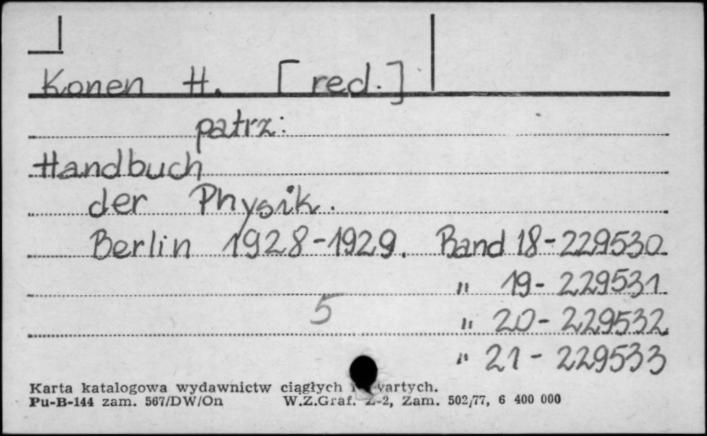 Konen H. [red.]
patrz:
Handbuch
der Physik.
Berlin 1928-1929. Band 18-229530
" 19-229531
5 " 20-229532
" 21-229533
Karta katalogowa wydawnictw ciągłych
Pu-B-144 zam. 567/DW/On W.Z.Graf. Z-2, Zam. 502/77, 6 400 000